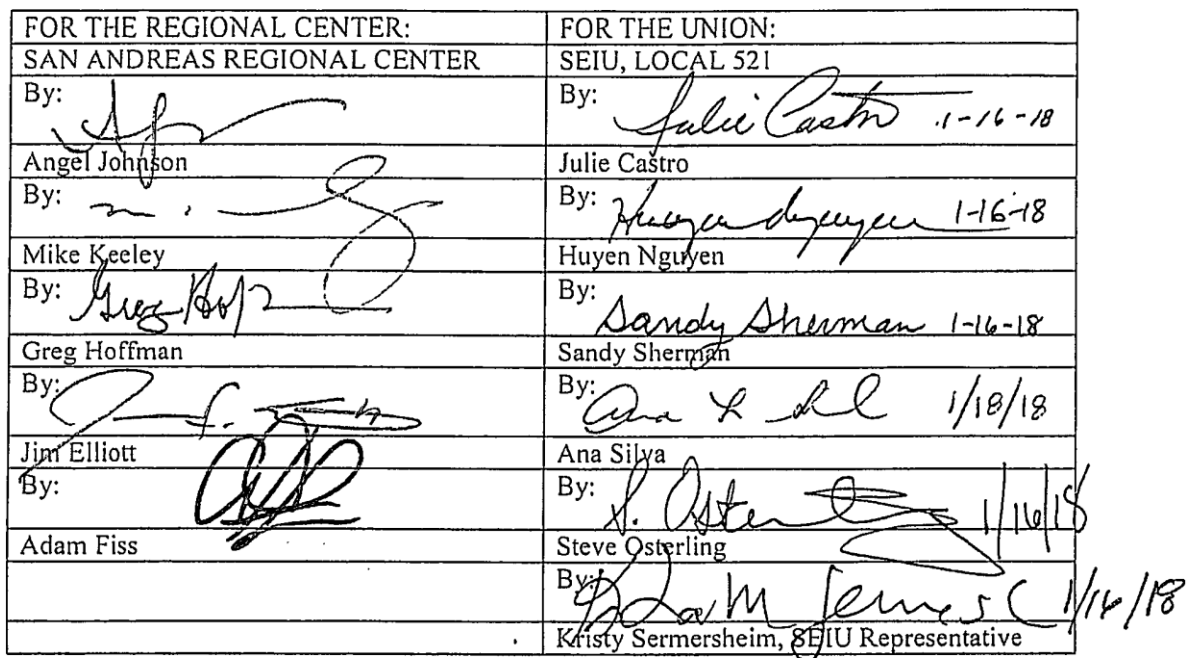 FOR THE REGIONAL CENTER: FOR THE UNION:
SAN ANDREAS REGIONAL CENTER SEIU, LOCAL 521
By: By: Julie Castro 1-16-18
Angel Johnson Julie Castro
By: By: Huyen Nguyen 1-16-18
Mike Keeley Huyen Nguyen
By: Greg Hof By: Sandy Sherman 1-16-18
Greg Hoffman Sandy Sherman
By: By: Ana 1/18/18
Jim Elliott Ana Silva
By: By: S. Osterling 1/16/18
Adam Fiss Steve Osterling
By: 1/16/18
Kristy Sermersheim, SEIU Representative